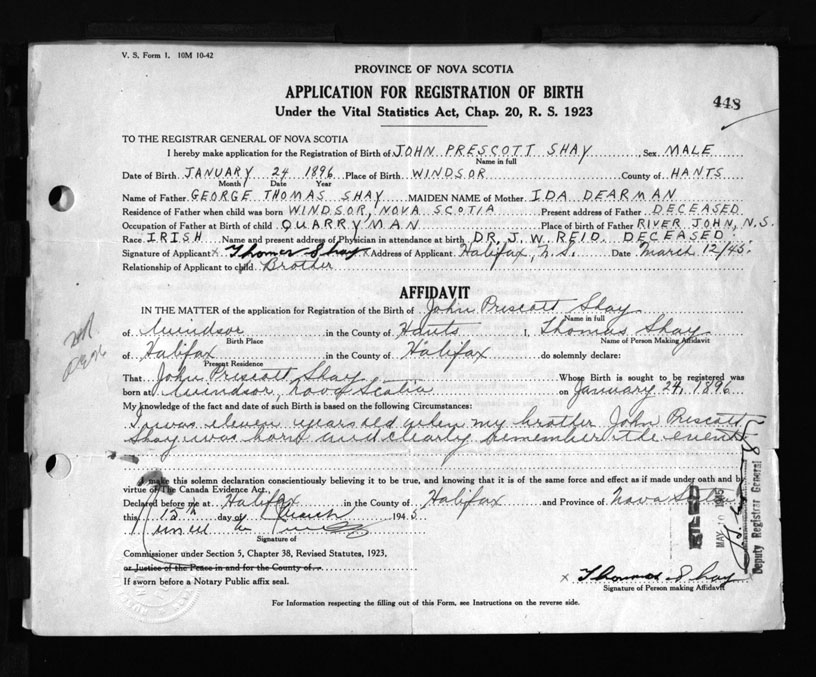 V. S. Form 1. 10M 10-42
PROVINCE OF NOVA SCOTIA
APPLICATION FOR REGISTRATION OF BIRTH
448
Under the Vital Statistics Act, Chap. 20, R. S. 1923
TO THE REGISTRAR GENERAL OF NOVA SCOTIA
I hereby make application for the Registration of Birth of JOHN PRESCOTT SHAY, Sex MALE
Name in full
Date of Birth JANUARY 24 1896 Place of Birth WINDSOR County of HANTS
Month Date Year
Name of Father GEORGE THOMAS SHAY MAIDEN NAME of Mother IDA DEARMAN
Residence of Father when child was born WINDSOR, NOVA SCOTIA Present address of Father DECEASED
Occupation of Father at Birth of child QUARRYMAN Place of birth of Father RIVER JOHN, N.S.
Race IRISH Name and present address of Physician in attendance at birth DR. J. W. REID. DECEASED.
Signature of Applicant x Thomas Shay Address of Applicant Halifax, N.S. Date March 12/45.
Relationship of Applicant to child Brother
AFFIDAVIT
IN THE MATTER of the application for Registration of the Birth of John Prescott Shay
Name in full
of Windsor in the County of Hants I, Thomas Shay
Birth Place Name of Person Making Affidavit
of Halifax in the County of Halifax do solemnly declare:
Present Residence
That John Prescott Shay Whose Birth is sought to be registered was
born at Windsor, Nova Scotia on January 24, 1896
My knowledge of the fact and date of such Birth is based on the following Circumstances:
I was eleven years old when my brother John Prescott
Shay was born and clearly remember the event.
I make this solemn declaration conscientiously believing it to be true, and knowing that it is of the same force and effect as if made under oath and by
virtue of The Canada Evidence Act.
Declared before me at Halifax in the County of Halifax and Province of Nova Scotia
this 12th day of March 1945.
Signature of
Commissioner under Section 5, Chapter 38, Revised Statutes, 1923,
or Justice of the Peace in and for the County of
If sworn before a Notary Public affix seal.
x Thomas Shay
Signature of Person making Affidavit
For Information respecting the filling out of this Form, see Instructions on the reverse side.
MAY 10 1945
Deputy Registrar General